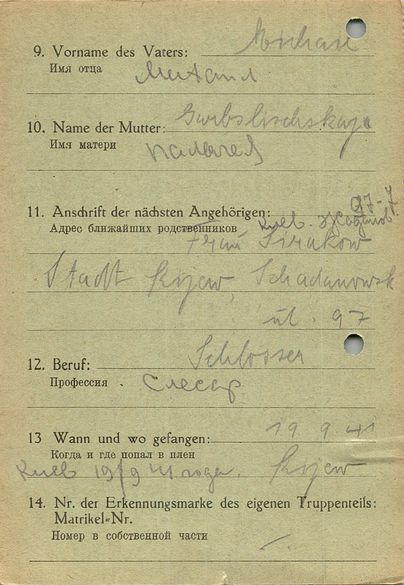 9. Vorname des Vaters: Michail
Имя отца Михаил
10. Name der Mutter:
Имя матери
97-7
11. Anschrift der nächsten Angehörigen:
Адрес ближайших родственников Киев.
Frau Sirakow
Stadt Kijew, Schadanowsk
ul. 97
12. Beruf: Schlosser
Профессия Слесар
13 Wann und wo gefangen: 19 9 41
Когда и где попал в плен
Киев 19/9 41 года. Kijew
14. Nr. der Erkennungsmarke des eigenen Truppenteils:
Matrikel-Nr.
Номер в собственной части